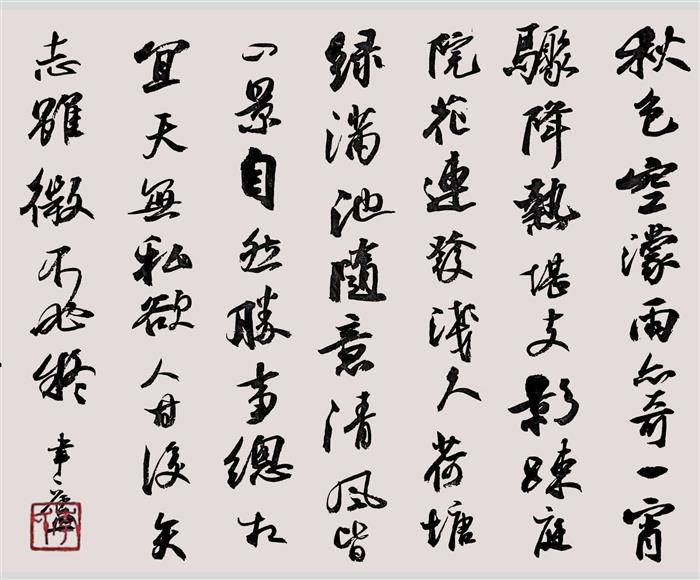 秋色空濛雨亦奇一宵
驟降熱堪支影踈庭
院花連發淺久荷塘
綠滿池隨意清風皆
可景自然勝事總相
宜天無私欲人甘後矢
志雖微不必移